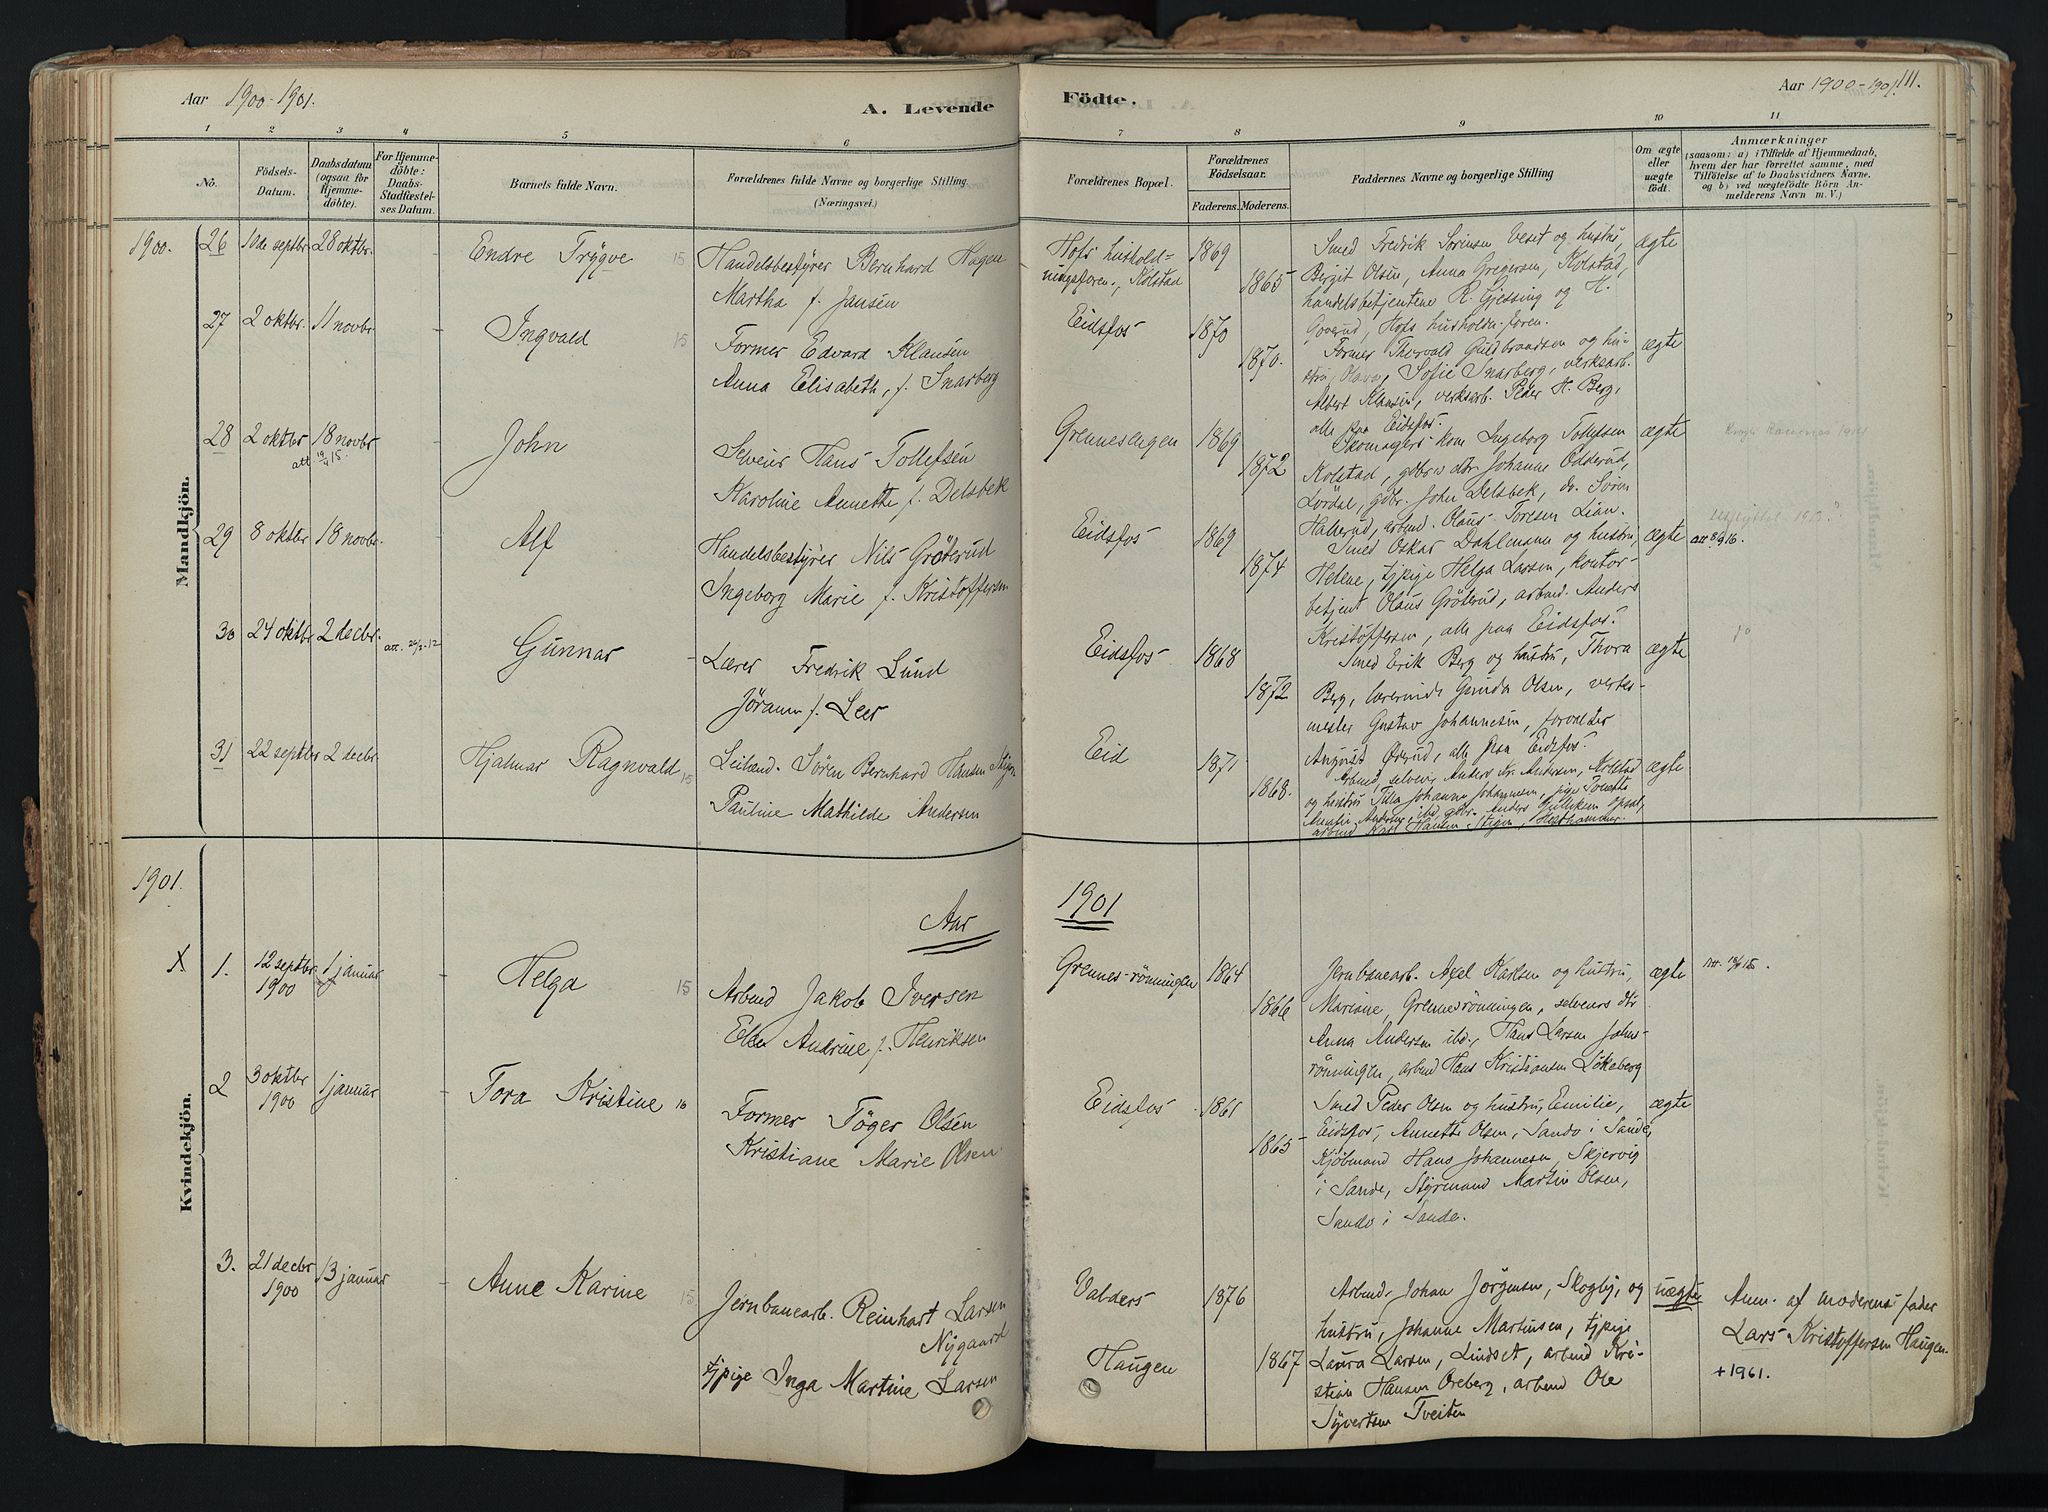 Aar 1900-1901.
A. Levende
Födte.
Aar 1900-1901. 111.
1 2 3 4 5 6 7 8 9 10 11
No.
Födsels-
Datum.
Daabsdatum
(ogsaa for
Hjemme-
döbte).
For Hjemme-
döbte:
Daabs-
Stadfæstel-
ses Datum.
Barnets fulde Navn.
Forældrenes fulde Navne og borgerlige Stilling.
(Næringsvei.)
Forældrenes Bopæl.
Forældrenes
Födselsaar.
Faderens. Moderens.
Faddernes Navne og borgerlige Stilling
Om ægte
eller
uægte
födt.
Anmærkninger
(saasom: a) i Tilfælde af Hjemmedaab,
hvem der har forrettet samme, med
Tilföielse af to Daabsvidners Navne,
og b) ved uægtefödte Börn An-
melderens Navn m. V.)
Mandkjön.
1900. 26 10de septbr. 28 oktbr. - Endre Trygve 15
Handelsbestyrer Bernhard Hagen
Martha f. Jansen
Hofs hushold-
ningsforen., Kolstad
1869
1865
Smed Fredrik Sörensen Veset og hustru,
Birgit Olsen, Anna Gregersen, Kolstad,
handelsbetjentene R. Gjessing og H.
Goverud, Hofs husholdn. foren.
ægte
27 2 oktbr. 11 novbr. - Ingvald 15
Former Edvard Klausen
Anna Elisabeth, f. Snarberg
Eidsfos
1870
1870.
Former Thorvald Guldbrandsen og hu-
stru Olava, Sofie Snarberg, verksarb.
Albert Klausen, verksarb. Peder H. Berg,
alle paa Eidsfos.
ægte
28 2 oktbr 18 novbr - John
att. 19/4 15.
Selveier Hans Tollefsen
Karoline Annette f. Delsbek
Grennesengen
1869
1872
Skomagers kone Ingeborg Tollefsen
Kolstad, gdbrs dtr Johanne Odderud,
Lördal, gdbr. John Delsbek, do. Sören
Hakerud, arbmd. Olaus Toresen Lian.
ægte
29 8 oktbr 18 novbr. - Alf
Handelsbestyrer Nils Gröterud
Ingeborg Marie f. Kristoffersen
Eidsfos
1869
1874
Smed Oskar Dahlmann og hustru,
Helene, tjpige Helga Larsen, kontor-
betjent Olaus Gröterud, arbmd. Anders
Kristoffersen, alle paa Eidsfos.
ægte
att. 8/9 16.
30 24 oktbr 2 decbr. att. 26/2-12 Gunnar -
Lærer Fredrik Lund
Jörann f. Leer
Eidsfos
1868
1872
Smed Erik Berg og hustru, Thora
Berg, lærerinde Gunda Olsen, verks-
mester Gustav Johannesen, forvalter
August Överud, alle paa Eidsfos.
ægte
31 22 septbr 2 decbr. - Hjalmar Ragnvald 15
Leilænd. Sören Bernhard Hansen Stigen
Pauline Mathilde Andersen
Eid
1871
1868.
Arbmd selveier Anders Kr. Andersen, Kolstad
og hustru Tilla Johanne Johannesen, pige Josette
Amalie Andersen, ibd, gdbr. Anders Gulliksen Opsal,
arbmd Karl Hansen Stigen, Hesthammer.
ægte
1901.
Aar
1901
Kvindekjön.
X 1. 12 septbr. 1 januar - Helga 15
1900
Arbmd Jakob Iversen
Elen Andrine f. Henriksen
Grennes-rönningen
1864
1866
Jernbanearb. Axel Karlsen og hustru,
Mariane, Grennesrönningen, selveiers dtr
Anna Andersen ibd., Hans Larsen Johns-
rönningen, arbmd Hans Kristiansen Lökeberg
ægte
att. 18/4 15.
2 3 oktbr 1 januar - Tora Kristine 16
1900
Former Töger Olsen
Kristiane Marie Olsen.
Eidsfos
1861
1865
Smed Peder Olsen og hustru, Emilie,
Eidsfos, Annette Olsen, Sando i Sande,
Kjöbmand Hans Johannesen, Skjervig
i Sande, Styrmand Martin Olsen,
Sando i Sande.
ægte
3. 21 decbr 13 januar - Anne Karine 15
1900
Jernbanearb. Reinhart Larsen
Nygaard
tjpige Inga Martine Larsen
Valders
Haugen
1876
1867
Arbmd. Johan Jörgensen, Skogly, og
hustru, Johanne Martinsen, tjpige
Laura Larsen, Lindset, arbmd Kri-
stian Hansen Öreberg, arbmd Ole
Syvertsen Tveiten
uægte
Anm. af moderens fader
Lars Kristoffersen Haugen.
+ 1961.